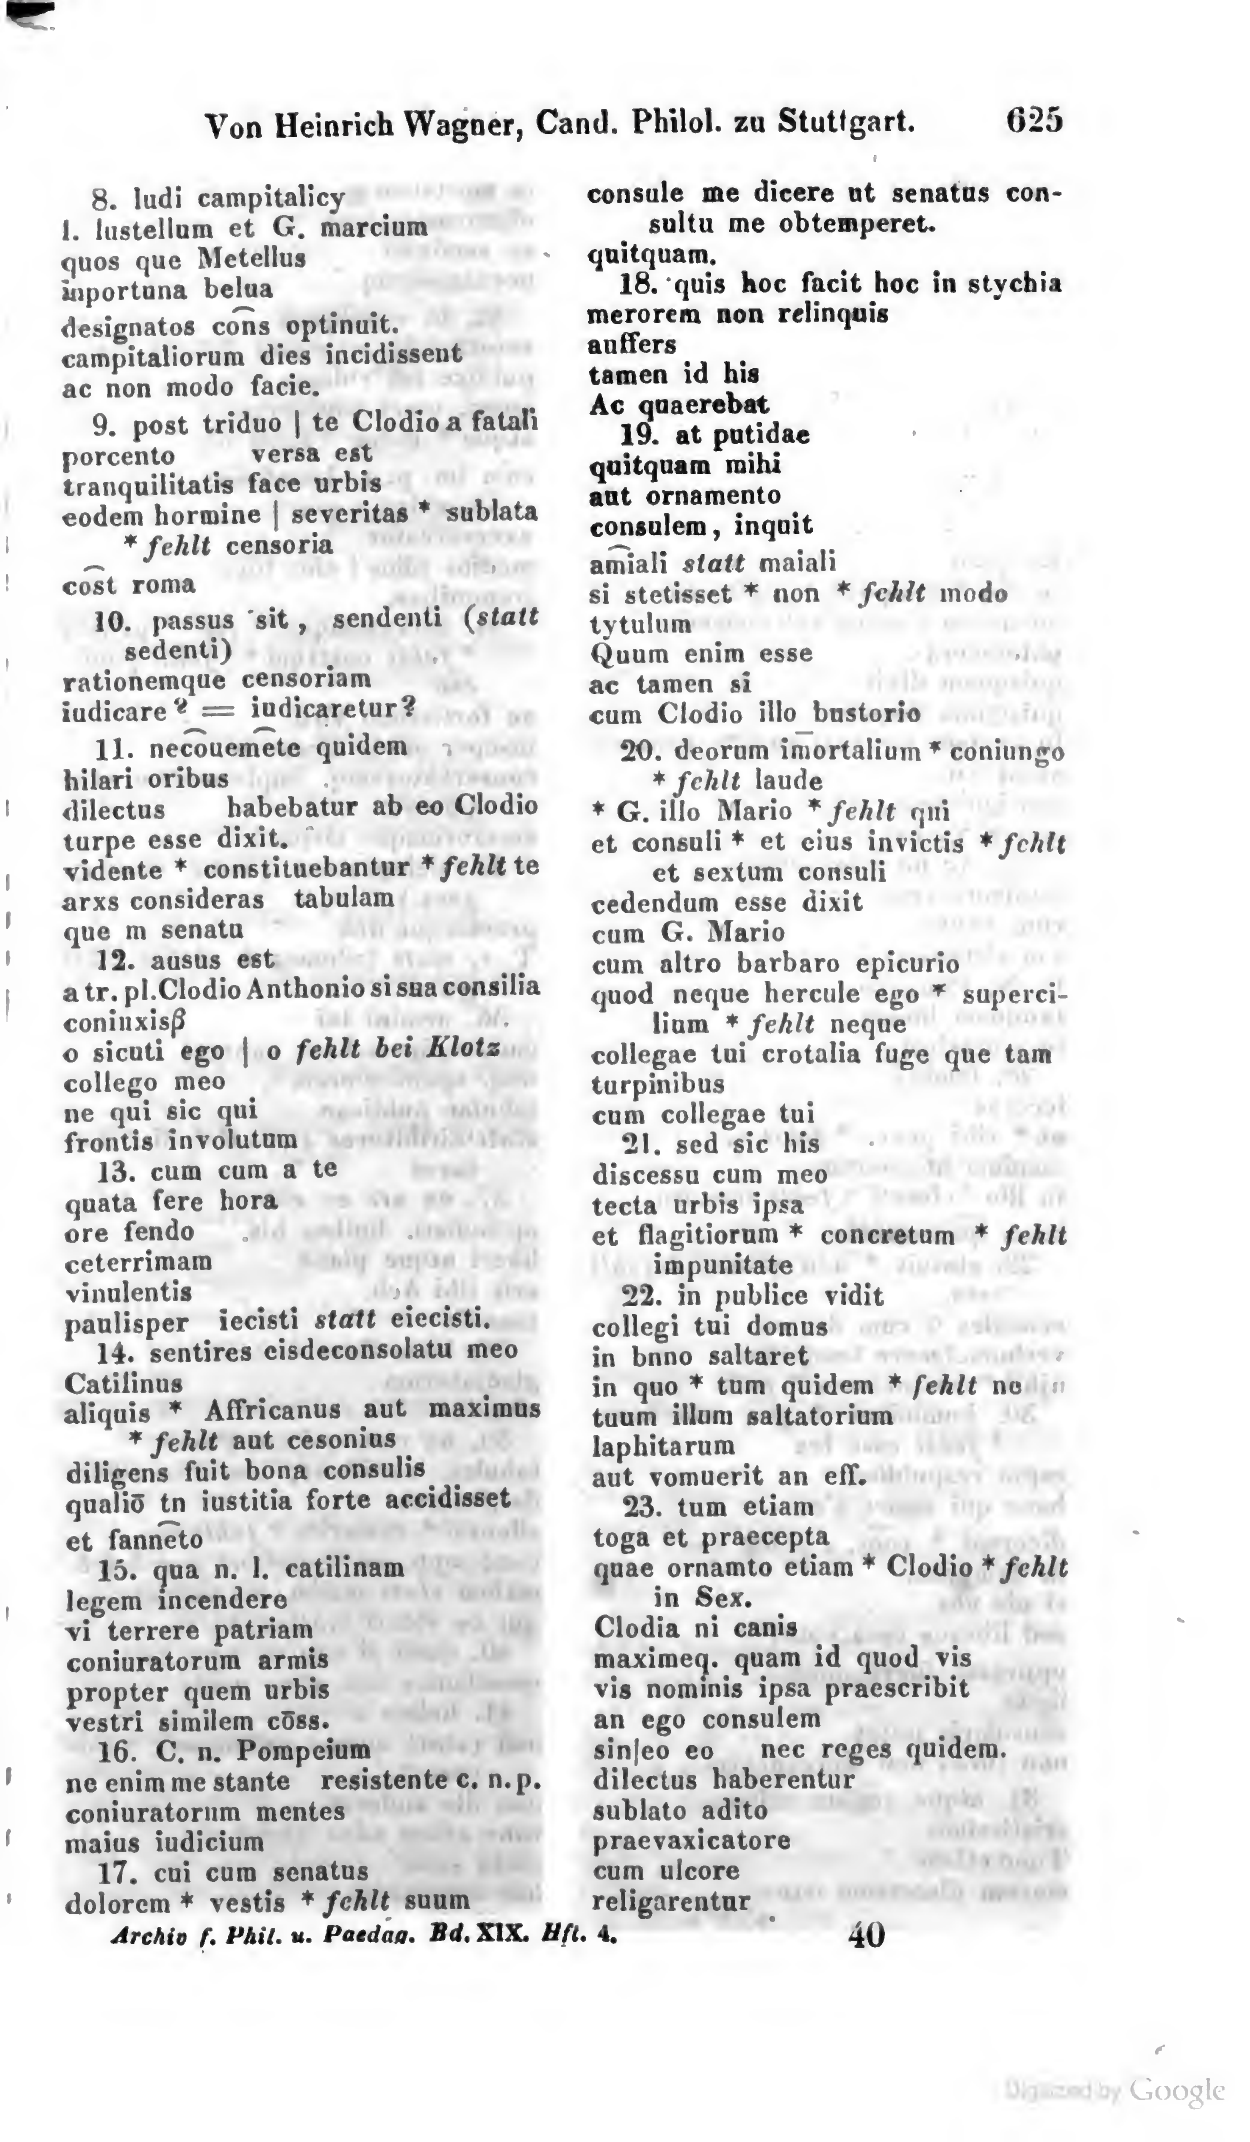 Von Heinrich Wagner, Cand. Philol. zu Stuttgart. 625
8. ludi campitalicy
l. lustellum et G. marcium
quos que Metellus
inportuna belua
designatos co͡ns optinuit.
campitaliorum dies incidissent
ac non modo facie.
9. post triduo | te Clodio a fatali
porcento versa est
tranquilitatis face urbis
eodem hormine | severitas * sublata
* fehlt censoria
co͡st roma
10. passus sit, sendenti (statt
sedenti)
rationemque censoriam
iudicare ? = iudicaretur?
11. nec͡ouem͡ete quidem
hilari oribus
dilectus habebatur ab eo Clodio
turpe esse dixit.
vidente * constituebantur * fehlt te
arxs consideras tabulam
que m senatu
12. ausus est
a tr. pl. Clodio Anthonio si sua consilia
coniuxisβ
o sicuti ego | o fehlt bei Klotz
collego meo
ne qui sic qui
frontis involutum
13. cum cum a te
quata fere hora
ore fendo
ceterrimam
vinulentis
paulisper iecisti statt eiecisti.
14. sentires cisdeconsolatu meo
Catilinus
aliquis * Affricanus aut maximus
* fehlt aut cesonius
diligens fuit bona consulis
qualiō tn iustitia forte accidisset
et fann͡eto
15. qua n. l. catilinam
legem incendere
vi terrere patriam
coniuratorum armis
propter quem urbis
vestri similem cōss.
16. C. n. Pompeium
ne enim me stante resistente c. n. p.
coniuratorum mentes
maius iudicium
17. cui cum senatus
dolorem * vestis * fehlt suum
consule me dicere ut senatus con-
sultu me obtemperet.
quitquam.
18. quis hoc facit hoc in stychia
merorem non relinquis
auffers
tamen id his
Ac quaerebat
19. at putidae
quitquam mihi
aut ornamento
consulem, inquit
a͡miali statt maiali
si stetisset * non * fehlt modo
tytulum
Quum enim esse
ac tamen si
cum Clodio illo bustorio
20. deorum im̄ortalium * coniungo
* fehlt laude
* G. illo Mario * fehlt qui
et consuli * et eius invictis * fehlt
et sextum consuli
cedendum esse dixit
cum G. Mario
cum altro barbaro epicurio
quod neque hercule ego * superci-
lium * fehlt neque
collegae tui crotalia fuge que tam
turpinibus
cum collegae tui
21. sed sic his
discessu cum meo
tecta urbis ipsa
et flagitiorum * concretum * fehlt
impunitate
22. in publice vidit
collegi tui domus
in bnno saltaret
in quo * tum quidem * fehlt ne
tuum illum saltatorium
laphitarum
aut vomuerit an eff.
23. tum etiam
toga et praecepta
quae ornamto etiam * Clodio * fehlt
in Sex.
Clodia ni canis
maximeq. quam id quod vis
vis nominis ipsa praescribit
an ego consulem
sin|eo eo nec reges quidem.
dilectus haberentur
sublato adito
praevaxicatore
cum ulcore
religarentur
Archiv f. Phil. u. Paedag. Bd. XIX. Hft. 4. 40
Digitized by Google